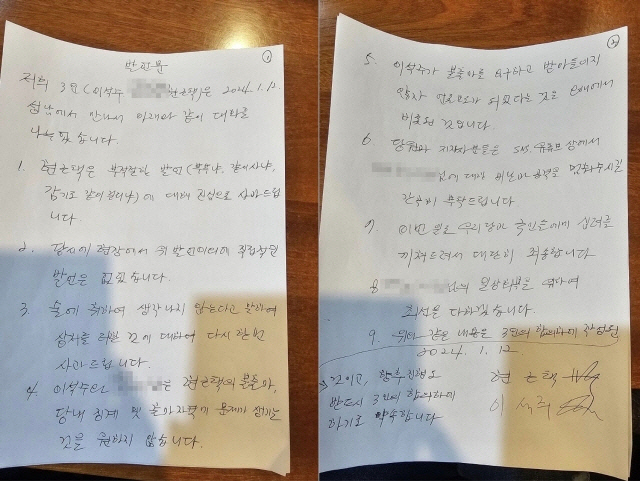 발표문 ①
저희 3인(이석주 현근택)은 2024.1.12.
성남에서 만나서 아래와 같이 대화를
나누었습니다.
1. 현근택은 부적절한 발언(부부냐, 같이사냐,
감기도 같이 걸렸냐)에 대해 진심으로 사과드립
니다.
2. 당시에 현장에서 위 발언이외에 부적절한
발언은 없었습니다.
3. 술에 취하여 생각나지 않는다고 말하여
상처를 드린 것에 대하여 다시 한번
사과드립니다.
4. 이석주와 은 현근택의 불출마,
당내 징계 및 문제가 생기는
것을 원하지 않습니다.
②
5. 이석주가 불출마를 요구하고 받아들이지
않자 되었다는 것은 오해에서
비롯된 것입니다.
6. 당원과 지지자분들은 SNS, 유튜브상에서
님에 대해 비난과 공격을 멈춰주시길
간곡히 부탁드립니다
7. 이번 일로 우리당과 국민들에게 심려를
끼쳐드려서 대단히 죄송합니다
8. 님의 위하여
최선을 다하겠습니다.
9. 위와 같은 내용은 3인의 합의하에 작성된
2024. 1. 12
것이고, 향후 진행도
반드시 3인이 합의하에
하기로 약속합니다
현근택
이석주